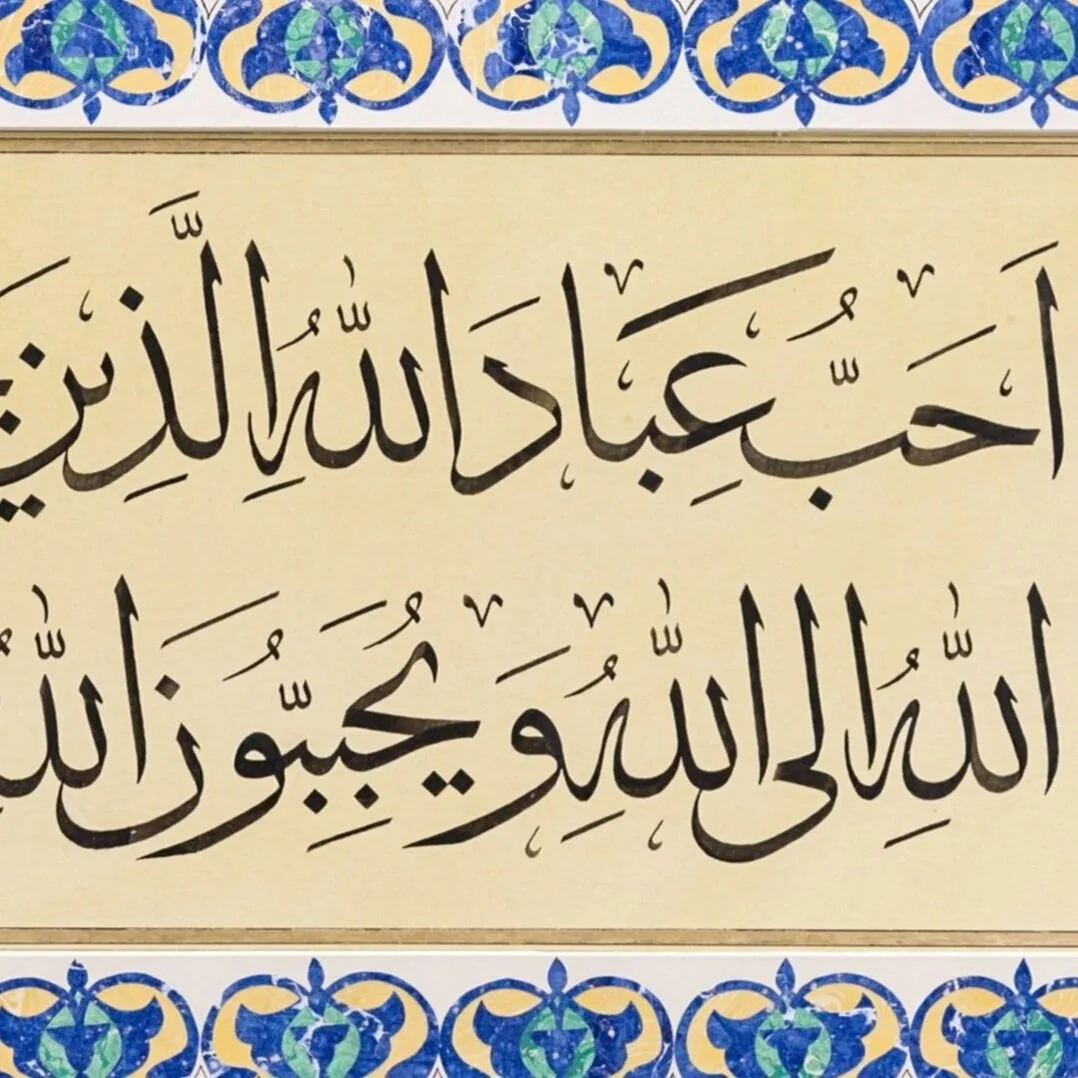 اَحَبُّ عِبَادَ اللهِ الَّذِينَ
اللهُ اِلَى اللهِ وَيُحَبِّبُونَ